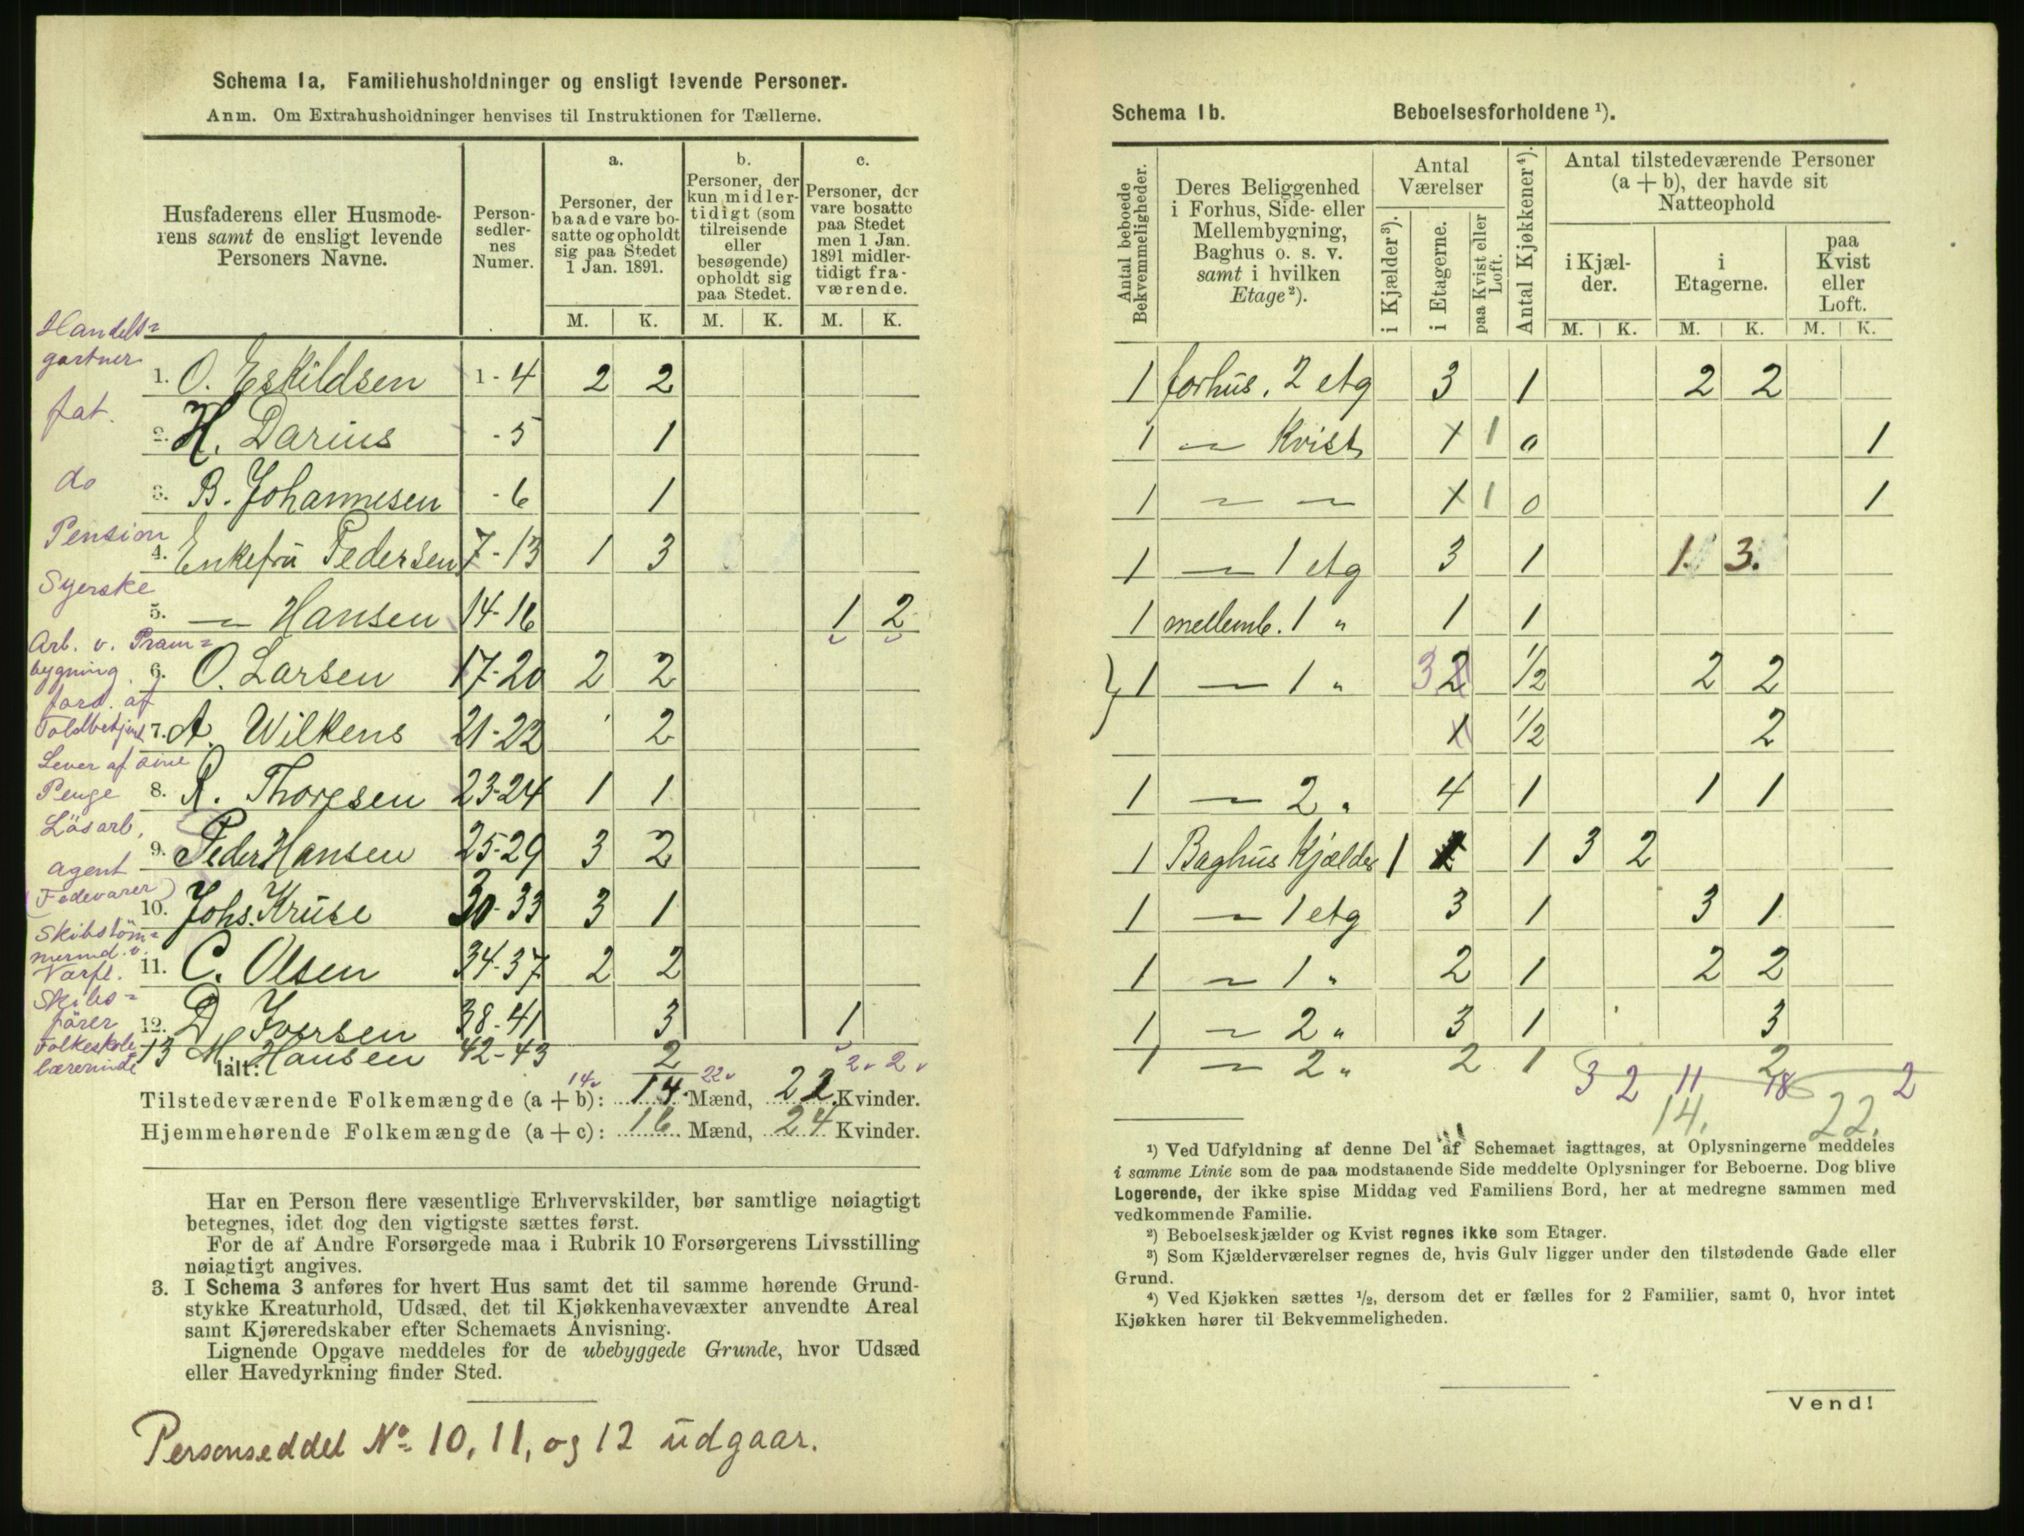 Schema 1a, Familiehusholdninger og ensligt levende Personer.
Anm. Om Extrahusholdninger henvises til Instruktionen for Tællerne.
Husfaderens eller Husmoderens samt de ensligt levende Personers Navne.
Personsedlernes Numer.
a.
Personer, der baade vare bosatte og opholdt sig paa Stedet 1 Jan. 1891.
b.
Personer, der kun midlertidigt (som tilreisende eller besøgende) opholdt sig paa Stedet.
c.
Personer, der vare bosatte paa Stedet men 1 Jan. 1891 midlertidigt fraværende.
M. K. M. K. M. K.
Handels=
gartner
1. O. Eskildsen 1-4 2 2
fat.
2. H. Darius -5 1
do
3. B. Johannesen -6 1
Pension
4. Enkefru Pedersen 7-13 1 3
Syerske
5. — Hansen 14-16 1 2
Arb. v. Pram=
bygning.
6. O. Larsen 17-20 2 2
fors. af
Toldbetjent
7. A. Wilkens 21-22 2
Lever af sine
Penge
8. R. Thoresen 23-24 1 1
Lösarb.
9. Peder Hansen 25-29 3 2
agent
(Fedevarer)
10. Johs. Kruse 30-33 3 1
Skibstöm=
mermd. v.
Værft.
11. C. Olsen 34-37 2 2
Skibs=
förer
12. D. Iversen 38-41 3 1
Folkeskole
lærerinde
13 M. Hansen 42-43 2
Ialt: 14 22 2 2
Tilstedeværende Folkemængde (a + b): 14. Mænd, 22 Kvinder.
Hjemmehørende Folkemængde (a + c): 16 Mænd, 24 Kvinder.
Har en Person flere væsentlige Erhvervskilder, bør samtlige nøiagtigt
betegnes, idet dog den vigtigste sættes først.
For de af Andre Forsørgede maa i Rubrik 10 Forsørgerens Livsstilling
nøiagtigt angives.
3. I Schema 3 anføres for hvert Hus samt det til samme hørende Grund-
stykke Kreaturhold, Udsæd, det til Kjøkkenhavevæxter anvendte Areal
samt Kjøreredskaber efter Schemaets Anvisning.
Lignende Opgave meddeles for de ubebyggede Grunde, hvor Udsæd
eller Havedyrkning finder Sted.
Personseddel No 10, 11, og 12 udgaar.
Schema 1b. Beboelsesforholdene ¹).
Antal beboede Bekvemmeligheder.
Deres Beliggenhed i Forhus, Side- eller Mellembygning, Baghus o. s. v. samt i hvilken Etage²).
Antal Værelser
i Kjælder³).
i Etagerne.
paa Kvist eller Loft.
Antal Kjøkkener⁴).
Antal tilstedeværende Personer (a + b), der havde sit Natteophold
i Kjælder.
i Etagerne.
paa Kvist eller Loft.
M. K. M. K. M. K.
1 forhus. 2 etg 3 1 2 2
1 — Kvist 1 1 0 1
1 — — 1 1 0 1
1 — 1 etg 3 1 1. 3.
1 mellemb. 1 „ 1 1
1 — 1 „ 3 2 1/2 2 2
1 1/2 2
1 — 2 „ 4 1 1 1
1 Baghus Kjælder 1 1 3 2
1 — 1 etg 3 1 3 1
1 — 1 „ 2 1 2 2
1 — 2 „ 3 1 3
1 — 2 „ 2 1 2
3 2 11 18 2
14. 22.
¹) Ved Udfyldning af denne Del af Schemaet iagttages, at Oplysningerne meddeles
i samme Linie som de paa modstaaende Side meddelte Oplysninger for Beboerne. Dog blive
Logerende, der ikke spise Middag ved Familiens Bord, her at medregne sammen med
vedkommende Familie.
²) Beboelseskjælder og Kvist regnes ikke som Etager.
³) Som Kjælderværelser regnes de, hvis Gulv ligger under den tilstødende Gade eller
Grund.
⁴) Ved Kjøkken sættes ½, dersom det er fælles for 2 Familier, samt 0, hvor intet
Kjøkken hører til Bekvemmeligheden.
Vend!